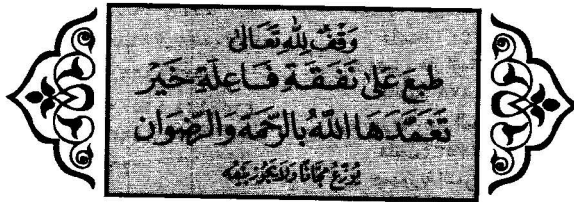 وَقْفٌ لِلّٰهِ تَعَالَىٰ
طُبِعَ عَلَىٰ نَفَقَةِ فَاعِلَةِ خَيْرٍ
تَغَمَّدَهَا اللّٰهُ بِالرَّحْمَةِ وَالرِّضْوَانِ
يُوَزَّعُ مَجَّانًا وَلَا يَجُوزُ بَيْعُهُ